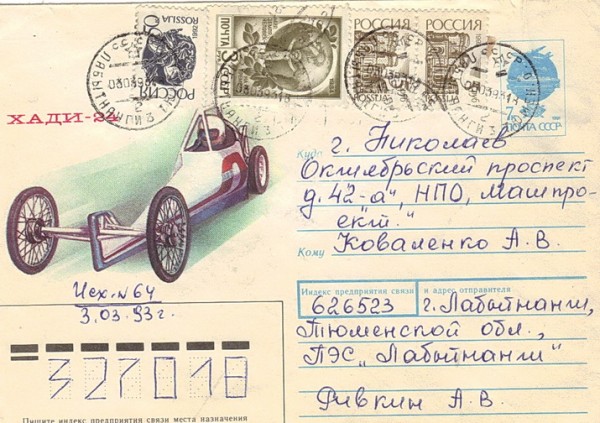 РОССИЯ
1992
50
ROSSIJA
ПОЧТА
СССР
РОССИЯ
РОССИЯ
ROSSIJA
ХАДИ-24
7к
ПОЧТА СССР
Куда
г. Николаев
Октябрьский проспект
д. 42-"а", НПО, Машпро-
ект."
Кому
Коваленко А.В.
Индекс предприятия связи
и адрес отправителя
626523
г. Лабытнанги,
Тюменской обл.,
ПЭС „Лабытнанги"
Ривкин А.В.
Исх. №64
3.03.93г.
327018
Пишите индекс предприятия связи места назначения